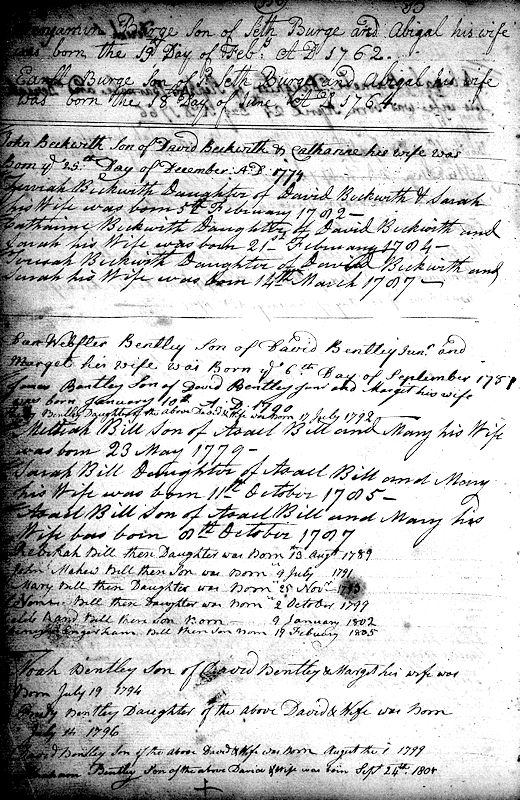 Benjamin Burge Son of Seth Burge and Abigal his wife
was born the 19 Day of Feb. A D 1762.
Burge Son of Seth Burge and Abigal his wife
was born the 18 Day of June A D 1764
John Beckwith Son of David Beckwith & Catharine his wife was
Born ye 25th Day of December A.D. 1774
Jerusiah Beckwith Daughter of David Beckwith & Sarah
his Wife was born 5th February 1782 -
Catharine Beckwith Daughter of David Beckwith and
Sarah his Wife was born 21st February 1784 -
Beckwith Daughter of David Beckwith and
Sarah his Wife was born 14th March 1787 -
Webster Bentley Son of David Bentley Junr. and
Marget his wife was Born ye 6th Day of September 178
James Bentley Son of David Bentley Junr and Marget his wife
was born January 10th A.D. 1790
Bentley Daughter of the above David & Wife was Born 17 July 1792
Bill Son of Asael Bill and Mary his Wife
was born 23 May 1779 -
Sarah Bill Daughter of Asael Bill and Mary
his Wife was born 11th October 1785 -
Asael Bill Son of Asael Bill and Mary his
Wife was born 8th October 1787
Rebekah Bill their Daughter was Born 13 Augt 1789
John Bill their Son was Born 9 July 1791
Mary Bill their Daughter was Born 25 Novr 1793
Bill their Daughter was Born 2 October 1799
Caleb Rand Bill their Son Born 9 January 1802
Ingersham Bill their Son Born 19 Febuary 1805
Noah Bentley Son of David Bentley & Marget his wife was
Born July 19 1794
Bentley Daughter of the above David & Wife was Born
July 14 1796
David Bentley Son of the above David & Wife was Born August the 1 1799
Abraham Bentley Son of the above David & Wife was born Sept 24th 1801